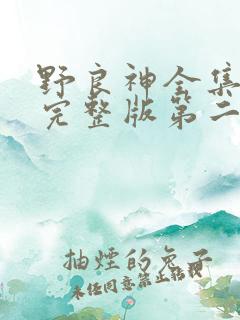 野良神全集
完整版第二
抽煙的兔子
未经同意禁止转载